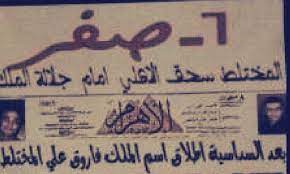 ٦ - صفر
المختلط سحق الاهلي امام جلالة الملك
الأهرام
بعد السداسية اطلاق اسم الملك فاروق علي المختلط